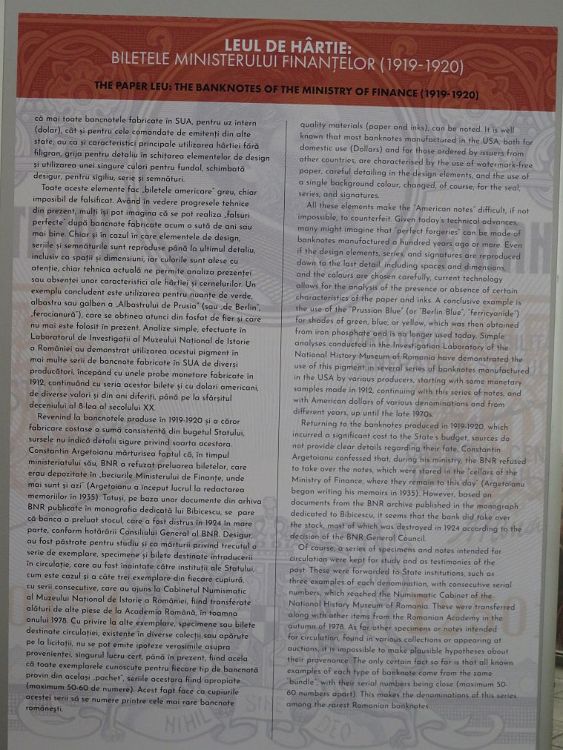 LEUL DE HÂRTIE:
BILETELE MINISTERULUI FINANȚELOR (1919-1920)
THE PAPER LEU: THE BANKNOTES OF THE MINISTRY OF FINANCE (1919-1920)
că mai toate bancnotele fabricate în SUA, pentru uz intern
(dolar), cât și pentru cele comandate de emitenți din alte
state, au ca și caracteristici principale utilizarea hârtiei fără
filigran, grija pentru detaliu în schițarea elementelor de design
și utilizarea unei singure culori pentru fundal, schimbată
desigur, pentru sigiliu, serie și semnături.
Toate aceste elemente fac „biletele americane” greu, chiar
imposibil de falsificat. Având în vedere progresele tehnice
din prezent, mulți își pot imagina că se pot realiza „falsuri
perfecte” după bancnote fabricate acum o sută de ani sau
mai bine. Chiar și în cazul în care elementele de design,
seriile și semnăturile sunt reproduse până la ultimul detaliu,
inclusiv ca spații și dimensiuni, iar culorile sunt alese cu
atenție, chiar tehnica actuală ne permite analiza prezenței
sau absenței unor caracteristici ale hârtiei și cernelurilor. Un
exemplu concludent este utilizarea pentru nuanțe de verde,
albastru sau galben a „Albastrului de Prusia” (sau „de Berlin”,
„ferocianură”), care se obținea atunci din fosfat de fier și care
nu mai este folosit în prezent. Analize simple, efectuate în
Laboratorul de Investigații al Muzeului Național de Istorie
a României au demonstrat utilizarea acestui pigment în
mai multe serii de bancnote fabricate în SUA de diverși
producători, începând cu unele probe monetare fabricate în
1912, continuând cu seria acestor bilete și cu dolari americani,
de diverse valori și din ani diferiți, până pe la sfârșitul
deceniului al 8-lea al secolului XX.
Revenind la bancnotele produse în 1919-1920 și a căror
fabricare costase o sumă consistentă din bugetul Statului,
sursele nu indică detalii sigure privind soarta acestora.
Constantin Argetoianu mărturisea faptul că, în timpul
ministeriatului său, BNR a refuzat preluarea biletelor, care
erau depozitate în „beciurile Ministerului de Finanțe, unde
mai sunt și azi” (Argetoianu a început lucrul la redactarea
memoriilor în 1935). Totuși, pe baza unor documente din arhiva
BNR publicate în monografia dedicată lui Bibicescu, se pare
că banca a preluat stocul, care a fost distrus în 1924 în mare
parte, conform hotărârii Consiliului General al BNR. Desigur,
au fost păstrate pentru studiu și ca mărturii privind trecutul o
serie de exemplare, specimene și bilete destinate introducerii
în circulație, care au fost înaintate către instituții ale Statului,
cum este cazul și a câte trei exemplare din fiecare cupiură,
cu serii consecutive, care au ajuns la Cabinetul Numismatic
al Muzeului Național de Istorie a României, fiind transferate
alături de alte piese de la Academia Română, în toamna
anului 1978. Cu privire la alte exemplare, specimene sau bilete
destinate circulației, existente în diverse colecții sau apărute
pe la licitații, nu se pot emite ipoteze verosimile asupra
provenienței, singurul lucru cert, până în prezent, fiind acela
că toate exemplarele cunoscute pentru fiecare tip de bancnotă
provin din același „pachet”, seriile acestora fiind apropiate
(maximum 50-60 de numere). Acest fapt face ca cupiurile
acestei serii să se numere printre cele mai rare bancnote
românești.
quality materials (paper and inks), can be noted. It is well
known that most banknotes manufactured in the USA, both for
domestic use (Dollars) and for those ordered by issuers from
other countries, are characterised by the use of watermark-free
paper, careful detailing in the design elements, and the use of
a single background colour, changed, of course, for the seal,
series, and signatures.
All these elements make the "American notes" difficult, if not
impossible, to counterfeit. Given today's technical advances,
many might imagine that "perfect forgeries" can be made of
banknotes manufactured a hundred years ago or more. Even
if the design elements, series, and signatures are reproduced
down to the last detail, including spaces and dimensions,
and the colours are chosen carefully, current technology
allows for the analysis of the presence or absence of certain
characteristics of the paper and inks. A conclusive example is
the use of the "Prussian Blue" (or "Berlin Blue", "ferricyanide")
for shades of green, blue, or yellow, which was then obtained
from iron phosphate and is no longer used today. Simple
analyses conducted in the Investigation Laboratory of the
National History Museum of Romania have demonstrated the
use of this pigment in several series of banknotes manufactured
in the USA by various producers, starting with some monetary
samples made in 1912, continuing with this series of notes, and
with American dollars of various denominations and from
different years, up until the late 1970s.
Returning to the banknotes produced in 1919-1920, which
incurred a significant cost to the State's budget, sources do
not provide clear details regarding their fate. Constantin
Argetoianu confessed that, during his ministry, the BNR refused
to take over the notes, which were stored in the "cellars of the
Ministry of Finance, where they remain to this day" (Argetoianu
began writing his memoirs in 1935). However, based on
documents from the BNR archive published in the monograph
dedicated to Bibicescu, it seems that the bank did take over
the stock, most of which was destroyed in 1924 according to the
decision of the BNR General Council.
Of course, a series of specimens and notes intended for
circulation were kept for study and as testimonies of the
past. These were forwarded to State institutions, such as
three examples of each denomination, with consecutive serial
numbers, which reached the Numismatic Cabinet of the
National History Museum of Romania. These were transferred
along with other items from the Romanian Academy in the
autumn of 1978. As for other specimens or notes intended
for circulation, found in various collections or appearing at
auctions, it is impossible to make plausible hypotheses about
their provenance. The only certain fact so far is that all known
examples of each type of banknote come from the same
"bundle", with their serial numbers being close (maximum 50-
60 numbers apart). This makes the denominations of this series
among the rarest Romanian banknotes.
NIHIL SINE DEO